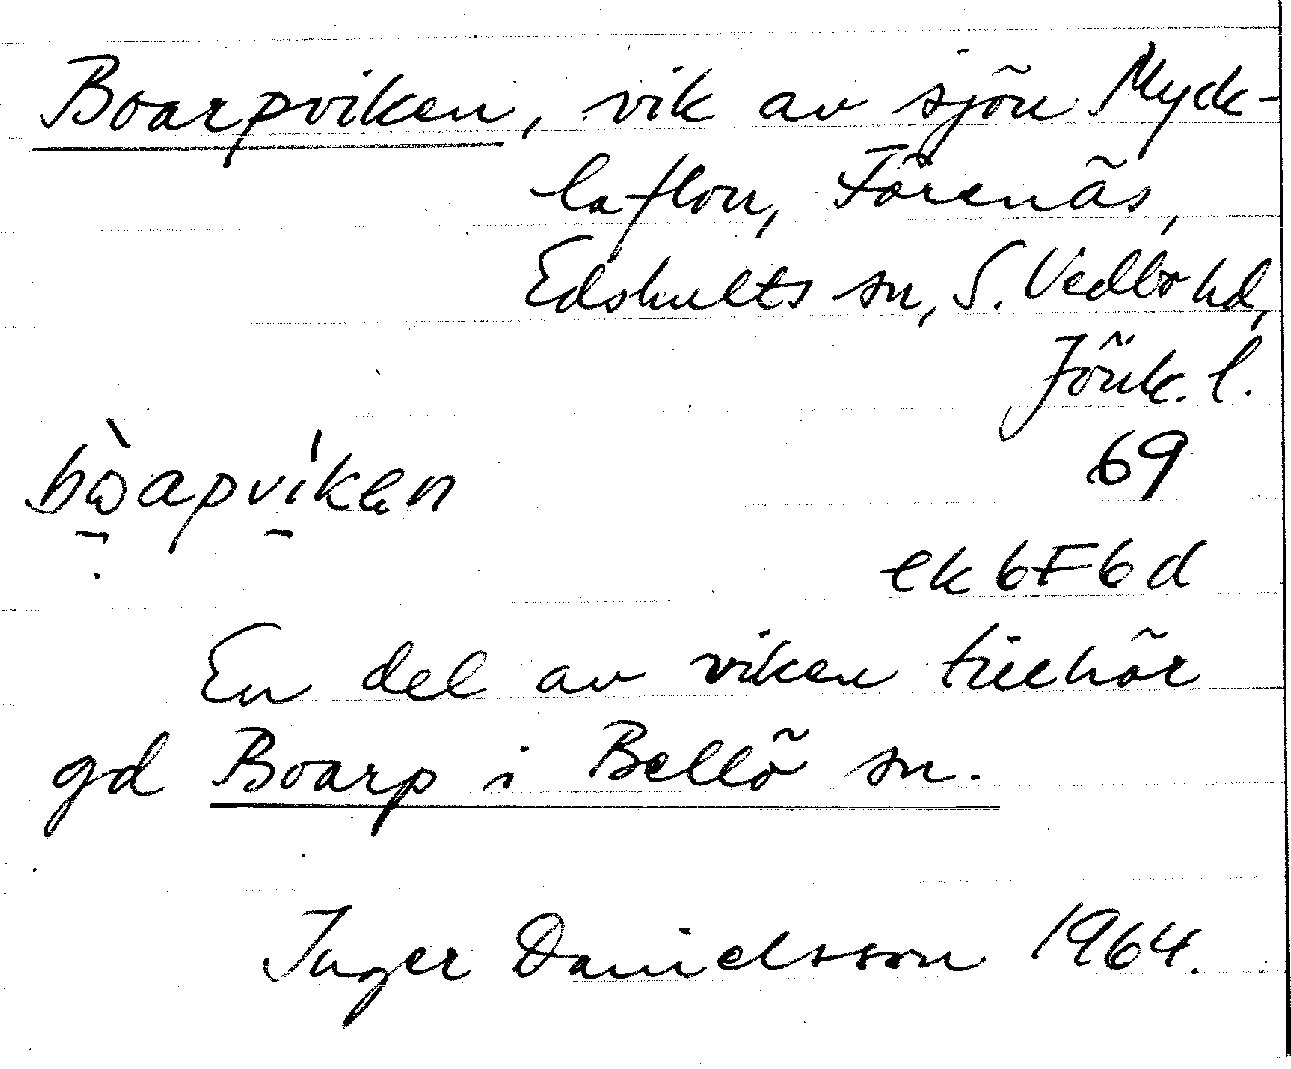 Boarpviken, vik av sjön Myck-
laflon, Förenäs,
Edshults sn, S. Vedbo hd,
Jönk. l.
69
ek 6F6d
En del av viken tillhör
gd Boarp i Bellö sn.
Inger Danielsson 1964.